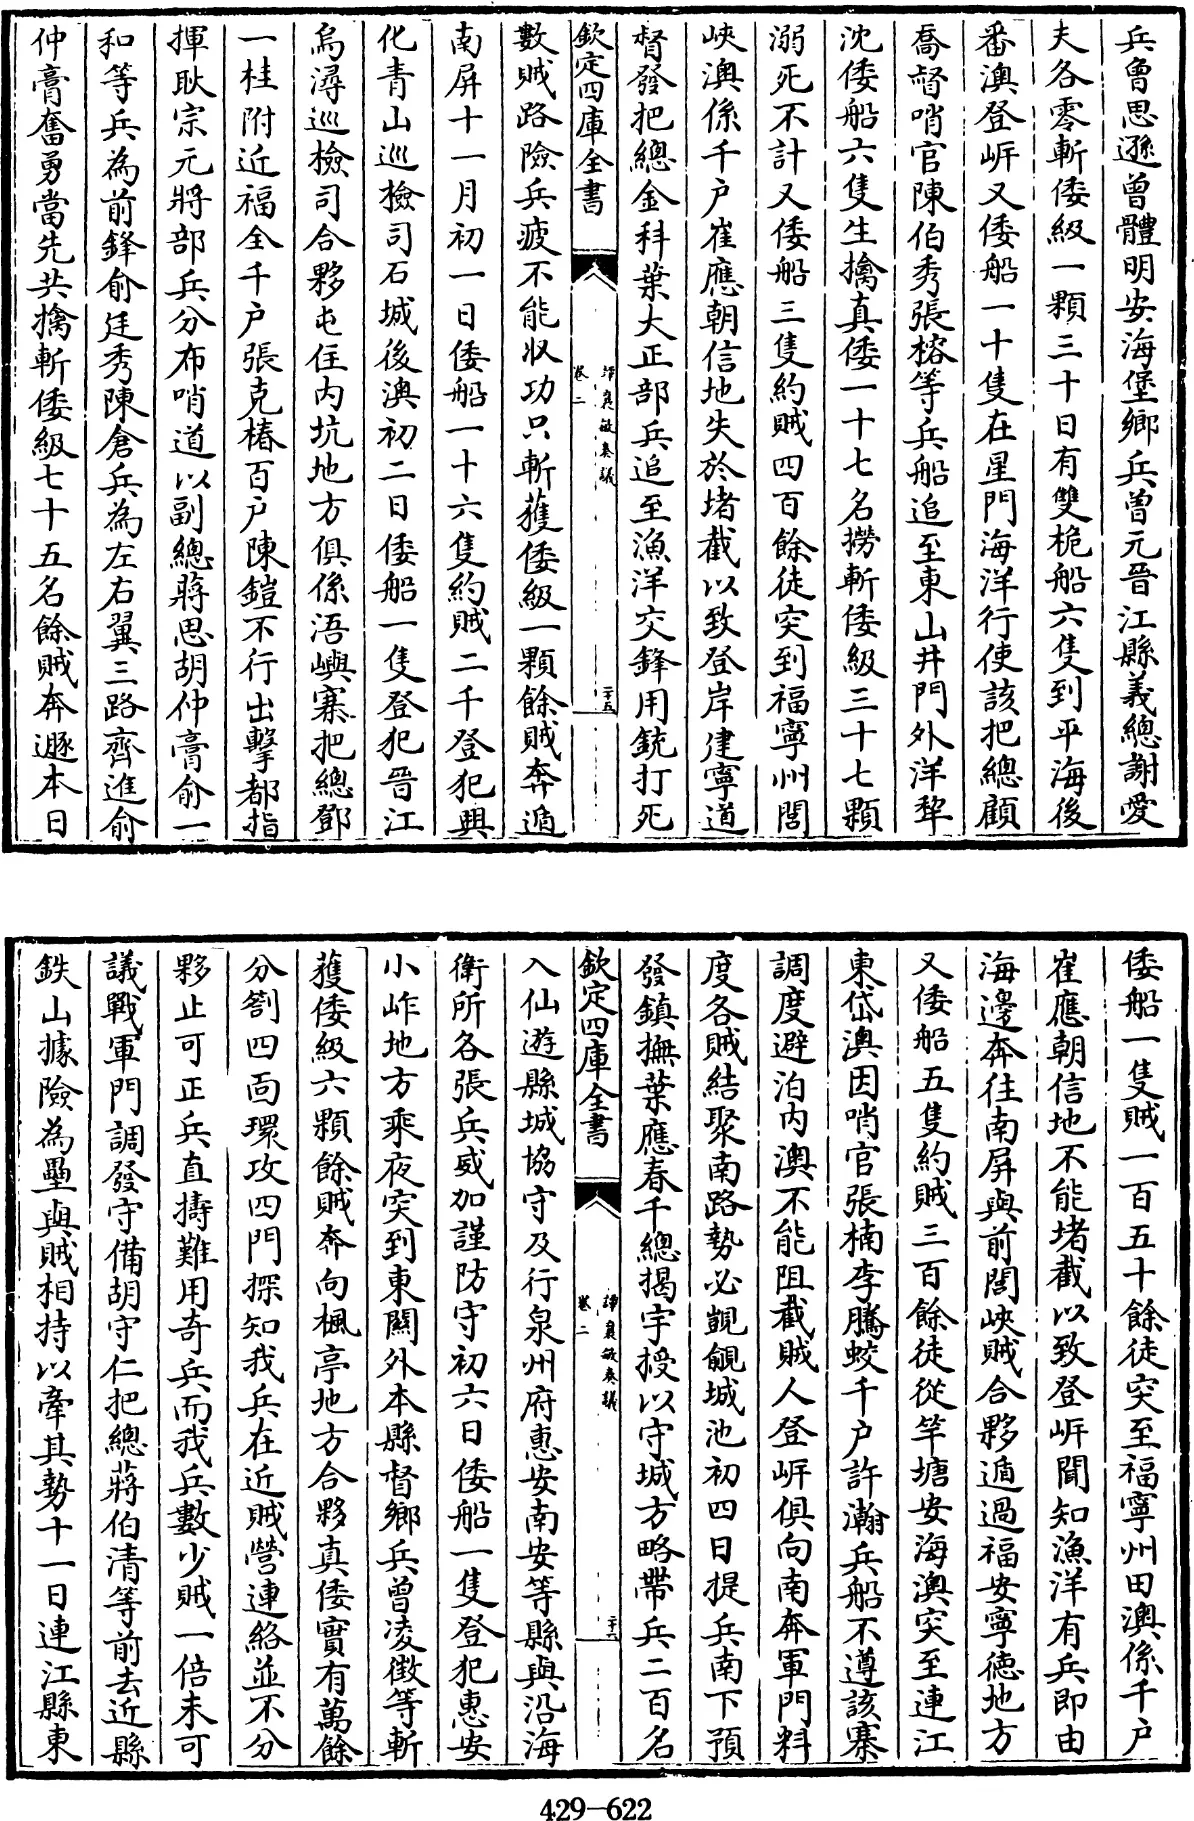 兵曾思遜曾體明安海堡鄉兵曾元晉江縣義總謝愛
夫各零斬倭級一顆三十日有雙桅船六隻到平海後
番澳登岍又倭船一十隻在星門海洋行使該把總顧
喬督哨官陳伯秀張榕等兵船追至東山井門外洋犂
沈倭船六隻生擒真倭一十七名撈斬倭級三十七顆
溺死不計又倭船三隻約賊四百餘徒突到福寧州閭
峽澳係千户崔應朝信地失於堵截以致登岸建寧道
督發把總金科葉大正部兵追至漁洋交鋒用銃打死
欽定四庫全書
譚襄敏奏議
卷二
二十五
數賊路險兵疲不能収功只斬獲倭級一顆餘賊奔遁
南屏十一月初一日倭船一十六隻約賊二千登犯興
化青山巡檢司石城後澳初二日倭船一隻登犯晉江
烏潯巡檢司合夥屯住内坑地方俱係浯嶼寨把總鄧
一桂附近福全千户張克椿百户陳鎧不行出擊都指
揮耿宗元將部兵分布哨道以副總蔣思胡仲膏俞一
和等兵為前鋒俞廷秀陳倉兵為左右翼三路齊進俞
仲膏奮勇當先共擒斬倭級七十五名餘賊奔遯本日
倭船一隻賊一百五十餘徒突至福寧州田澳係千户
崔應朝信地不能堵截以致登岍聞知漁洋有兵即由
海邊奔往南屏與前閭峽賊合夥遁過福安寧徳地方
又倭船五隻約賊三百餘徒從竿塘安海澳突至連江
東岱澳因哨官張楠李騰蛟千户許瀚兵船不遵該寨
調度避泊内澳不能阻截賊人登岍俱向南奔軍門料
度各賊結聚南路勢必覬覦城池初四日提兵南下預
發鎮撫葉應春千總揭宇授以守城方略帶兵二百名
欽定四庫全書
譚襄敏奏議
卷二
二十六
入仙遊縣城協守及行泉州府惠安南安等縣與沿海
衛所各張兵威加謹防守初六日倭船一隻登犯惠安
小岞地方乘夜突到東關外本縣督鄉兵曾凌徵等斬
獲倭級六顆餘賊奔向楓亭地方合夥真倭實有萬餘
分劄四面環攻四門探知我兵在近賊營連絡並不分
夥止可正兵直擣難用奇兵而我兵數少賊一倍未可
議戰軍門調發守備胡守仁把總蔣伯清等前去近縣
鉄山據險為壘與賊相持以牽其勢十一日連江縣東
429—622